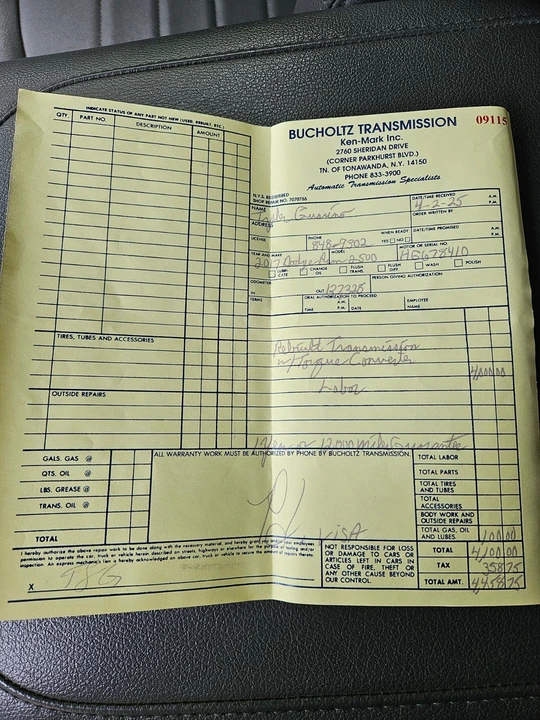 INDICATE STATUS OF ANY PART NOT NEW (USED, REBUILT, ETC.)
QTY. PART NO. DESCRIPTION AMOUNT
TIRES, TUBES AND ACCESSORIES
OUTSIDE REPAIRS
BUCHOLTZ TRANSMISSION 09115
Ken-Mark Inc.
2760 SHERIDAN DRIVE
(CORNER PARKHURST BLVD.)
TN. OF TONAWANDA, N.Y. 14150
PHONE 833-3900
Automatic Transmission Specialists
N.Y.S. REGISTERED
SHOP REPAIR NO. 7070756
DATE/TIME RECEIVED A.M. P.M.
4-2-25
NAME
ORDER WRITTEN BY
ADDRESS
WHEN READY YES NO DATE/TIME PROMISED A.M. P.M.
LICENSE PHONE 848-7902
YEAR AND MAKE MODEL MOTOR OR SERIAL NO.
2017 Dodge Ram 2500 HG678410
LUBRI-CATE CHANGE OIL FLUSH TRANS. FLUSH DIFF. WASH POLISH
ODOMETER PERSON GIVING AUTHORIZATION
IN OUT 127328
TERMS ORAL AUTHORIZATION TO PROCEED EMPLOYEE
TIME A.M. P.M. DATE NAME
Rebuilt Transmission
w/Torque Converter
4000 00
Labor
1 Year or 12,000 Mile Guarantee
ALL WARRANTY WORK MUST BE AUTHORIZED BY PHONE BY BUCHOLTZ TRANSMISSION.
GALS. GAS @
QTS. OIL @
LBS. GREASE @
TRANS. OIL @
TOTAL GAS/OIL
VISA
TOTAL LABOR
TOTAL PARTS
TOTAL TIRES AND TUBES
TOTAL ACCESSORIES
BODY WORK AND OUTSIDE REPAIRS
TOTAL GAS, OIL AND LUBES. 100 00
TOTAL 4100 00
TAX 358 75
TOTAL AMT. 4458 75
I hereby authorize the above repair work to be done along with the necessary material, and hereby grant you and/or your employees
permission to operate the car, truck or vehicle herein described on streets, highways or elsewhere for the purpose of testing and/or
inspection. An express mechanic's lien is hereby acknowledged on above car, truck or vehicle to secure the amount of repairs thereto.
X
NOT RESPONSIBLE FOR LOSS
OR DAMAGE TO CARS OR
ARTICLES LEFT IN CARS IN
CASE OF FIRE, THEFT OR
ANY OTHER CAUSE BEYOND
OUR CONTROL.